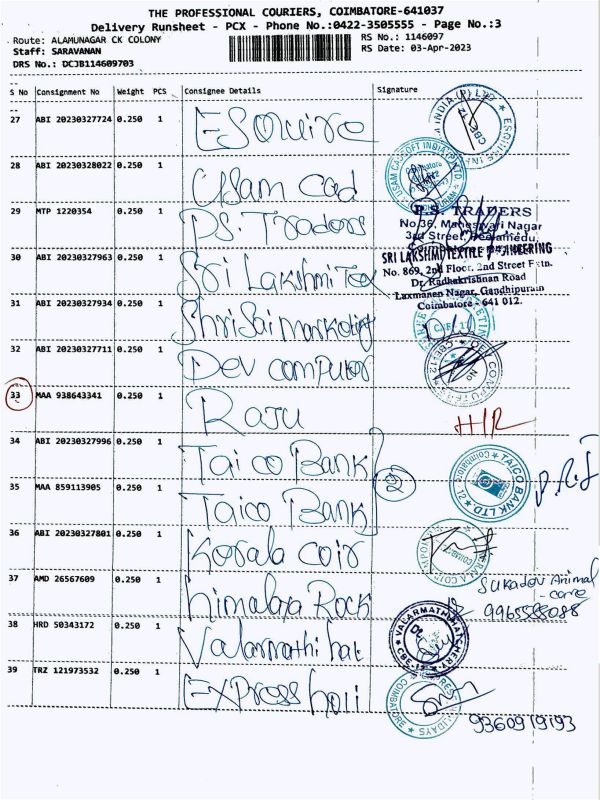 THE PROFESSIONAL COURIERS, COIMBATORE-641037
Delivery Runsheet - PCX - Phone No.:0422-3505555 - Page No.:3
Route: ALAMUNAGAR CK COLONY RS No.: 1146097
Staff: SARAVANAN RS Date: 03-Apr-2023
DRS No.: DCJB114609703
S No Consignment No Weight PCS Consignee Details Signature
27 ABI 20230327724 0.250 1 Esquire
28 ABI 20230328022 0.250 1 Usam Cad
29 MTP 1220354 0.250 1 P.S. Traders
P.S. TRADERS
No.36, Maheswari Nagar
3rd Street,
30 ABI 20230327963 0.250 1 Sri Lakshmi Tex
SRI LAKSHMI TEXTILE ENGINEERING
No. 869, 2nd Floor, 2nd Street Extn.
Dr. Radhakrishnan Road
Laxmanen Nagar, Gandhipuram
Coimbatore - 641 012.
31 ABI 20230327934 0.250 1 Shri Sai marketing
32 ABI 20230327711 0.250 1 Dev computer
33 MAA 938643341 0.250 1 Raju H/R
34 ABI 20230327996 0.250 1 Taico Bank
2
TAICO BANK LTD. Coimbatore
35 MAA 859113905 0.250 1 Taico Bank
36 ABI 20230327801 0.250 1 Kerala coir
37 AMD 26567609 0.250 1 himalaya Rock
Sukadev Animal
- care
9965588088
38 HRD 50343172 0.250 1 Valarmathi hat
39 TRZ 121973532 0.250 1 Express holi
9360919193